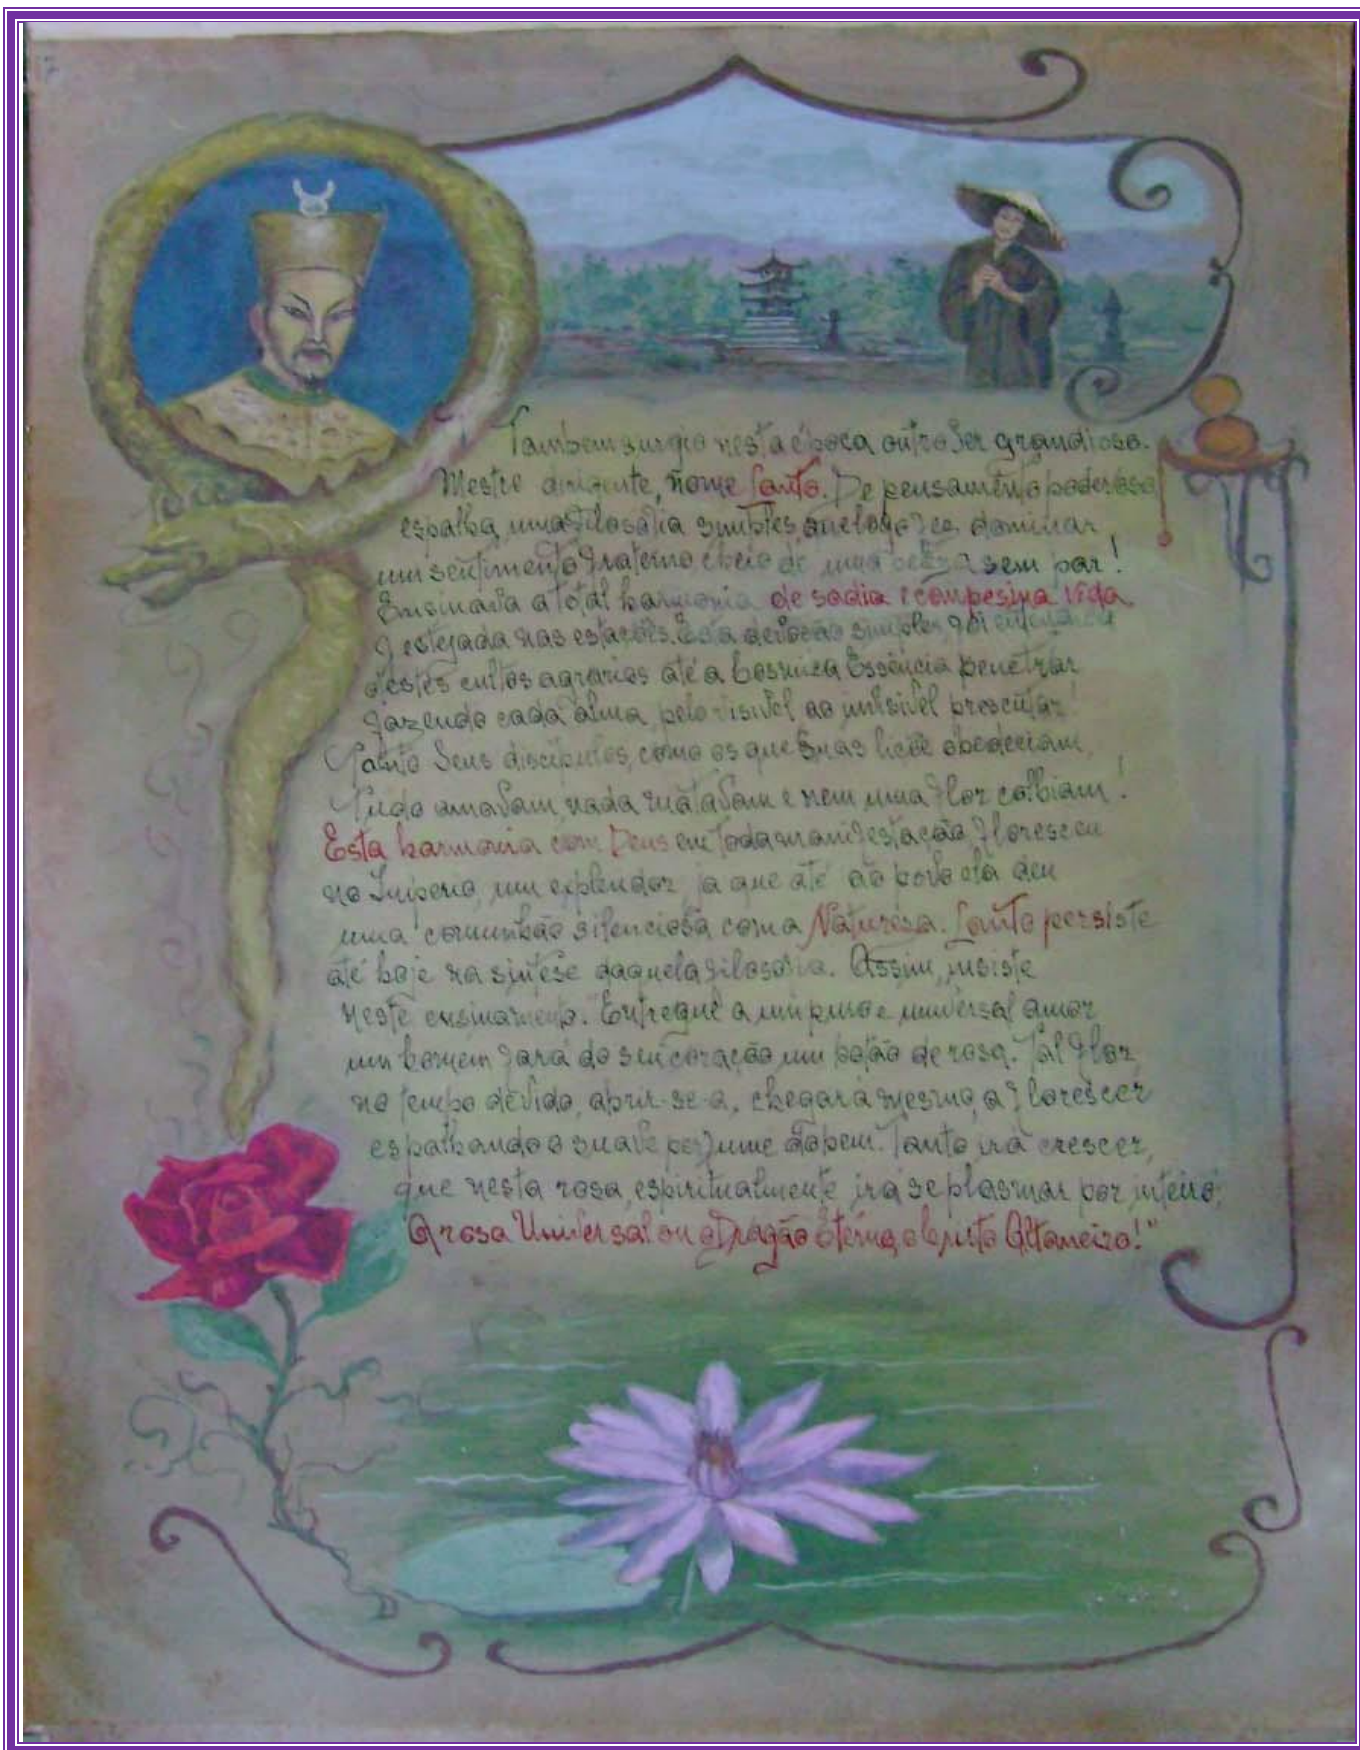 Tambem surgio nesta época outro Ser grandioso.
Mestre dirigente, nome Lanto. De pensamento poderoso
espalha uma filosofia simples, que logo fez dominar
um sentimento fraterno, cheio de uma beleza sem par!
Ensinava a total harmonia de sadia e compesina vida,
festejada nas estações. Esta devoção simples foi
destes cultos agrarios até a Cosmica Essência penetrar
fazendo cada alma, pelo visivel ao invisivel prescutar!
Tanto Seus discipulos, como os que Suas liçõe obedeciam,
Tudo amavam, nada matavam e nem uma flor colhiam!
Esta harmonia com Deus em toda manifestação, floresceu
no Imperio, um explendor, ja que até ao povo ela deu
uma comunhão silenciosa com a Naturesa. Lanto persiste
até hoje na sintese daquela filosofia. Assim, insiste
neste ensinamento. "Entregue a um puro e universal amor
um homem fará do seu coração um botão de rosa. Tal flor,
no tempo devido, abrir-se-a, chegará mesmo, a florescer
espalhando o suave perfume do bem. Tanto irá crescer,
que nesta rosa, espiritualmente irá se plasmar por inteiro,
A rosa Universal ou o Dragão eterno, o Cristo Altaneiro!"